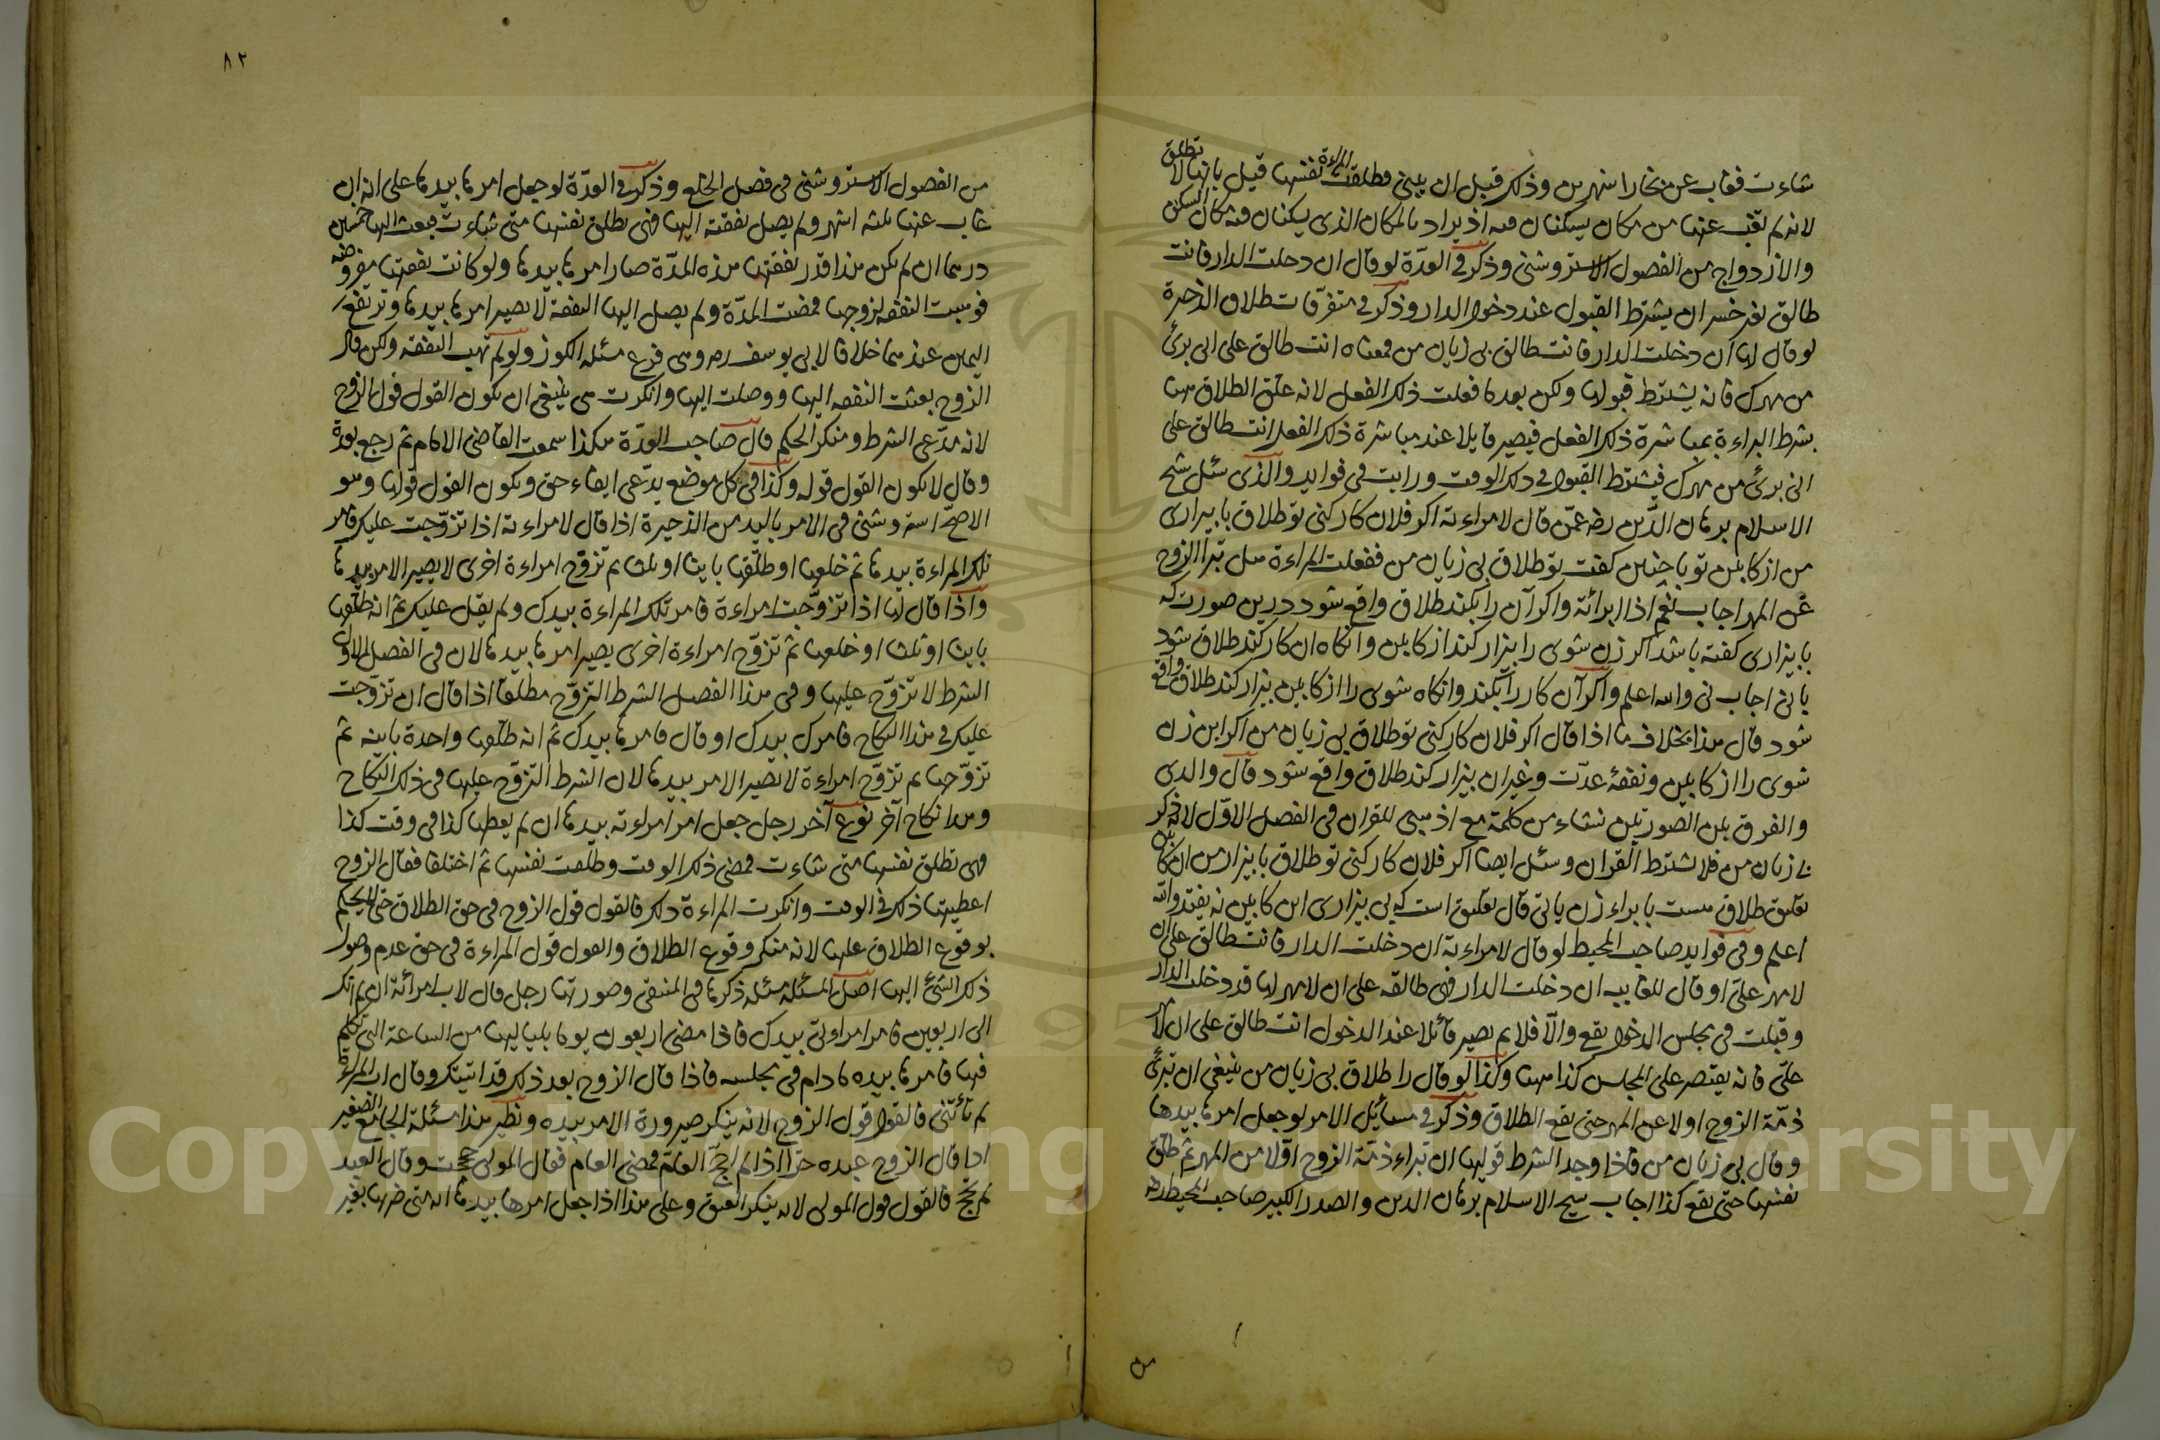 شاءت فغاب عن بخارا شهرين وذلك قبل ان يبنى فطلقت المراءة نفسها قيل بانها لا تطلق
لانه لم تغب عنها من مكان يسكنان فيه اذ يراد بالمكان الذى يسكنان فيه مكان السكن
والازدواج من الفصول الاستروشنى وذكر فى العدّة لو قال ان دخلت الدار فانت
طالق يشترط القبول عند دخول الدار وذكر فى متفرقات طلاق الذخيرة
لو قال لها ان دخلت الدار فانت طالق بى زيان من فمعناه انت طالق على انى برئ
من مهرك فانه يشترط قبولها ولكن بعد ما فعلت ذلك الفعل لانه علق الطلاق منها
بشرط البراءة بمباشرة ذلك الفعل فيصير قايلا عند مباشرة ذلك الفعل انت طالق على
انى برئ من مهرك فيشترط القبول فى ذلك الوقت ورايت فى فوايد والدى سئل شيخ
الاسلام برهان الدّين رضه عمّن قال لامراءته اكر فلان كار كنى تو طلاق با بيزارى
من از كابين تو با چنين كفت تو طلاق بى زيان من ففعلت المراءة هل تبرا الزوج
عن المهر اجاب نعم اذا ابرائه واكر آن را بكند طلاق واقع شود درين صورت كه
با بيزارى كفته باشد اكر زن شوى را بيزار كند از كابين وانكاه ان كار كند طلاق شود
يا نى اجاب نى والله اعلم واكر آن كار را بكند وانكاه شوى را از كابين بيزار كند طلاق واقع
شود قال هذا بخلاف ما اذا قال اكر فلان كار كنى تو طلاق بى زيان من اكر اين زن
شوى را از كابين ونفقهٔ عدّت وغيران بيزار كند طلاق واقع شود قال والدى
والفرق بين الصورتين نشاء من كلمة مع اذ هى للقران فى الفصل الاوّل لانه ذكر
زيان من فلا يشترط القران وسئل ايضا اكر فلان كار كنى تو طلاق با بيزار من از كابين
تعليق طلاق هست با براء زن يا نى قال تعليق است كه بى بيزارى اين كابين نه يفتد والله
اعلم وفى فوايد صاحب المحيط لو قال لامراءته ان دخلت الدار فانت طالق على ان
لا مهر علىّ او قال للغايبه ان دخلت الدار فهى طالقه على ان لا مهر لها قد دخلت الدار
وقبلت فى مجلس الدخول يقع والّا فلا ثم يصير قائلا عند الدخول انت طالق على ان لا مهر
علىّ فانه يقتصر على المجلس كذا ههنا وكذا لو قال را طلاق بى زيان من ينبغى ان تبرئ
ذمّة الزوج اولا عن المهر حتى يقع الطلاق وذكر فى مسائيل الامر لو جعل امرها بيدها
وقال بى زيان من فاذا وجد الشرط قولها ان تبراء ذمّة الزوج اوّلا من المهر ثم طلق
نفسها حتى يقع كذا اجاب شيخ الاسلام برهان الدين والصدر الكبير صاحب المحيط رضه
من
٨٢
من الفصول الاستروشنى فى فصل الخلع وذكر فى العدّة لو جعل امرها بيدها على انه ان
غاب عنها ثلثه اشهر ولم يصل نفقته اليها فهى تطلق نفسها متى شاءت فبعث اليها خمسين
درهما ان لم يكن هذا قدر نفقتها هذه المدّة صار امرها بيدها ولو كانت نفقتها مفروضه
فوهبت النفقه لزوجها فمضت المدّة ولم يصل اليها النفقة لا يصير امرها بيدها وترتفع
اليمين عندهما خلافا لابى يوسف ره وهى فرع مسئله الكوز ولو لم تهب النفقه ولكن قال
الزوج بعثت النفقه اليها ووصلت اليها وانكرت هى ينبغى ان يكون القول قول الزوج
لانه مدّعى الشرط ومنكر الحكم قال صاحب العدّة هكذا سمعت القاضى الامام ثم رجع بعده
وقال لا يكون القول قوله وكذا فى كل موضع يدّعى ايفاء حق ويكون القول قولها وهو
الاصحّ استروشنى فى الامر باليد من الذخيرة اذا قال لامراءته اذا تزوّجت عليك فامر
تلك المراءة بيدها ثم خلعها او طلّقها باينا او ثلث ثم تزوّج امراءة اخرى لا يصير الامر بيدها
واذا قال لها اذا تزوّجت امراءة فامر تلك المراءة بيدك ولم يقل عليك ثم انه طلّقها
باينا او ثلثا او خلعها ثم تزوّج امراءة اخرى يصير امرها بيدها لان فى الفصل الاول
الشرط لا تزوّج عليها وفى هذا الفصل الشرط التزوّج مطلقا اذا قال ان تزوّجت
عليك فى هذا النكاح فامرك بيدك او قال فامرها بيدك ثم انه طلّقها واحدة باينه ثم
تزوّجها ثم تزوّج امراءة لا يصير الامر بيدها لان الشرط التزوّج عليها فى ذلك النكاح
وهذا نكاح آخر نوع آخر رجل جعل امر امراءته بيدها ان لم يعطها كذا فى وقت كذا
فهى تطلق نفسها متى شاءت فمضى ذلك الوقت وطلقت نفسها ثم اختلفا فقال الزوج
اعطيتها ذلك فى الوقت وانكرت المراءة ذلك فالقول قول الزوج فى حق الطلاق حتى لا يحكم
بوقوع الطلاق عليها لانه منكر وقوع الطلاق والقول قول المراءة فى حق عدم وصول
ذلك الشئ اليها اصل المسئله مسئلة ذكرها فى المنتقى وصورتها رجل قال لاب امرائه ان لم اتك
الى اربعين فامر امراءتى بيدك فاذا مضى اربعون يوما بلياليها من الساعة التى تكلم
فيها فامرها بيده مادام فى مجلسه فاذا قال الزوج بعد ذلك قد اتيتك وقال اب المراءة
لم تاتنى فالقول قول الزوج لانه ينكر صيرورة الامر بيده ونظير هذا مسئلة الجامع الصغير
اذا قال الزوج عبده حرّ اذا لم احجّ العام فمضى العام فقال المولى حججت وقال العبد
لم تحجّ فالقول قول المولى لانه ينكر العتق وعلى هذا اذا جعل امرها بيدها انه متى ضربها بغير
Copyright © King Saud University